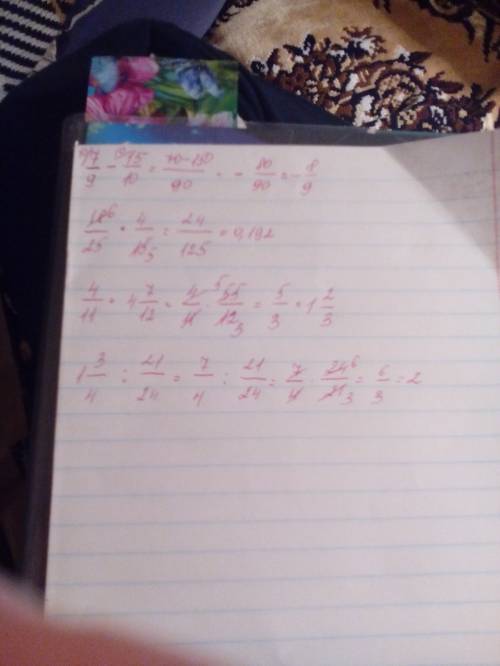 7/9 - 15/10 = 70-150/90 = - 80/90 = - 8/9
18⁶/25 · 4/15₅ = 24/125 = 0,192
4/11 · 4 7/12 = 4/11 · ⁵55/12₃ = 5/3 = 1 2/3
1 3/4 : 21/24 = 7/4 : 21/24 = 7/4 · 24⁶/21₃ = 6/3 = 2